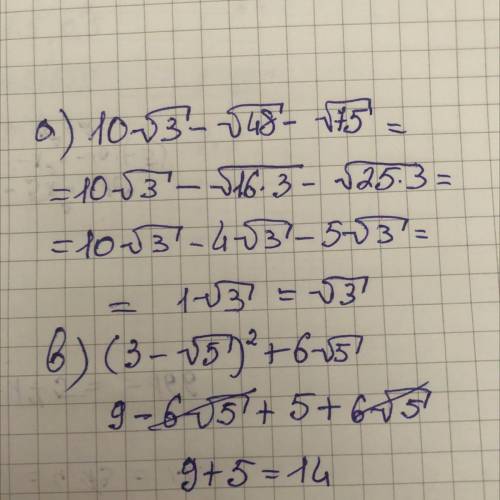 а) 10√3 - √48 - √75 =
= 10√3 - √16·3 - √25·3 =
= 10√3 - 4√3 - 5√3 =
= 1√3 = √3
в) (3 - √5)² + 6√5
9 - 6√5 + 5 + 6√5
9 + 5 = 14